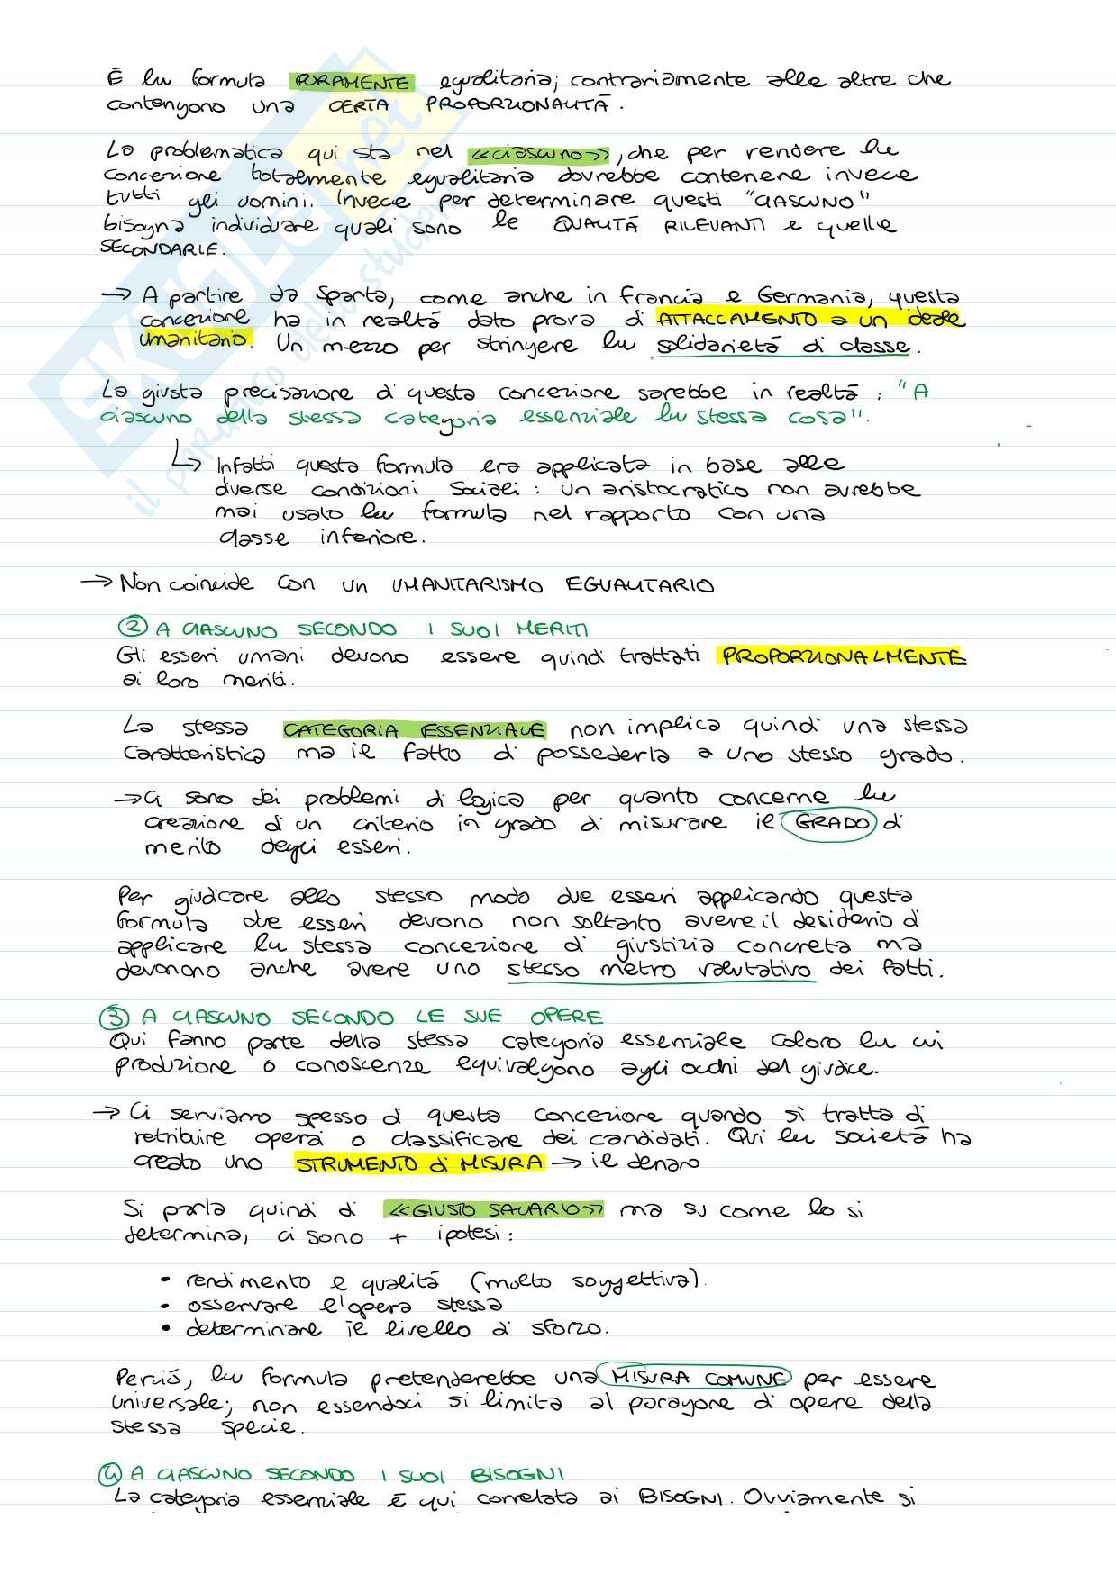 È la formula PURAMENTE egualitaria; contrariamente alle altre che
contengono una CERTA PROPORZIONALITÀ.
La problematica qui sta nel <<CIASCUNO>>, che per rendere la
concezione totalmente egualitaria dovrebbe contenere invece
tutti gli uomini. Invece per determinare questi "CIASCUNO"
bisogna individuare quali sono le QUALITÀ RILEVANTI e quelle
SECONDARIE.
→ A partire da Sparta, come anche in Francia e Germania, questa
concezione ha in realtà dato prova di ATTACCAMENTO a un ideale
umanitario. Un mezzo per stringere la solidarietà di classe.
La giusta precisazione di questa concezione sarebbe in realtà: "A
ciascuno della stessa categoria essenziale la stessa cosa".
↳ Infatti questa formula era applicata in base alle
diverse condizioni sociali: un aristocratico non avrebbe
mai usato la formula nel rapporto con una
classe inferiore.
→ Non coincide con un UMANITARISMO EGUALITARIO
② A CIASCUNO SECONDO I SUOI MERITI
Gli esseri umani devono essere quindi trattati PROPORZIONALMENTE
ai loro meriti.
La stessa CATEGORIA ESSENZIALE non implica quindi una stessa
caratteristica ma il fatto di possederla a uno stesso grado.
→ Ci sono dei problemi di logica per quanto concerne la
creazione di un criterio in grado di misurare il GRADO di
merito degli esseri.
Per giudicare allo stesso modo due esseri applicando questa
formula due esseri devono non soltanto avere il desiderio di
applicare la stessa concezione di giustizia concreta ma
devonono anche avere uno stesso metro valutativo dei fatti.
③ A CIASCUNO SECONDO LE SUE OPERE
Qui fanno parte della stessa categoria essenziale coloro la cui
produzione o conoscenze equivalgono agli occhi del giudice.
→ Ci serviamo spesso di questa concezione quando si tratta di
retribuire operai o classificare dei candidati. Qui la società ha
creato uno STRUMENTO di MISURA → il denaro
Si parla quindi di <<GIUSTO SALARIO>> ma su come lo si
determina, ci sono + ipotesi:
• rendimento e qualità (molto soggettiva).
• osservare l'opera stessa
• determinare il livello di sforzo.
Perciò, la formula pretenderebbe una MISURA COMUNE per essere
universale; non essendoci si limita al paragone di opere della
stessa specie.
④ A CIASCUNO SECONDO I SUOI BISOGNI
La categoria essenziale è qui correlata ai BISOGNI. Ovviamente si